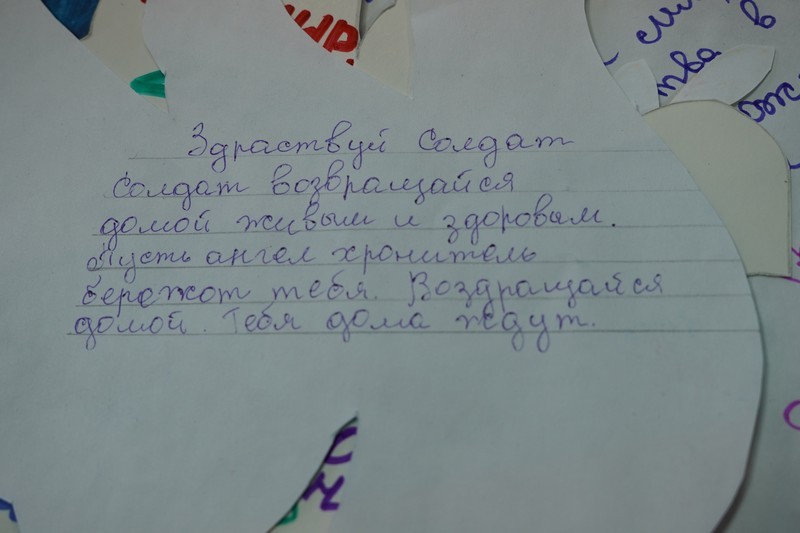 Здраствуй Солдат
Солдат возвращайся
домой живым и здоровым.
Пусть ангел хронитель
бережот тебя. Воздращайся
домой. Тебя дома ждут.
тва в